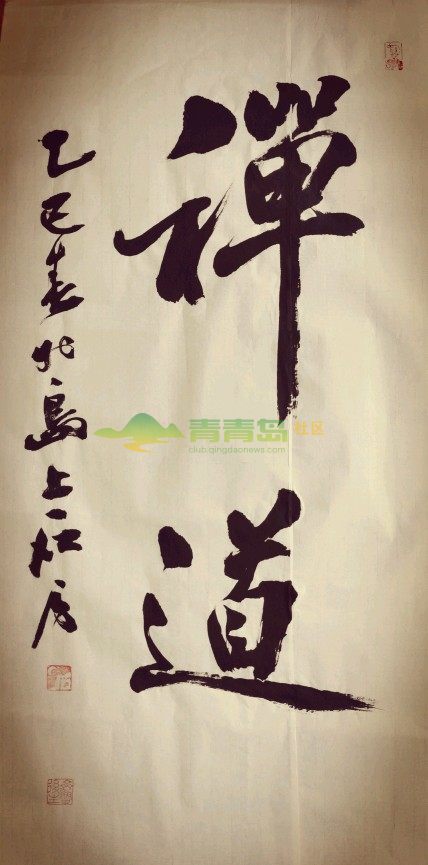 禪道
乙巳春北島上一松方
青青岛社区
club.qingdaonews.com